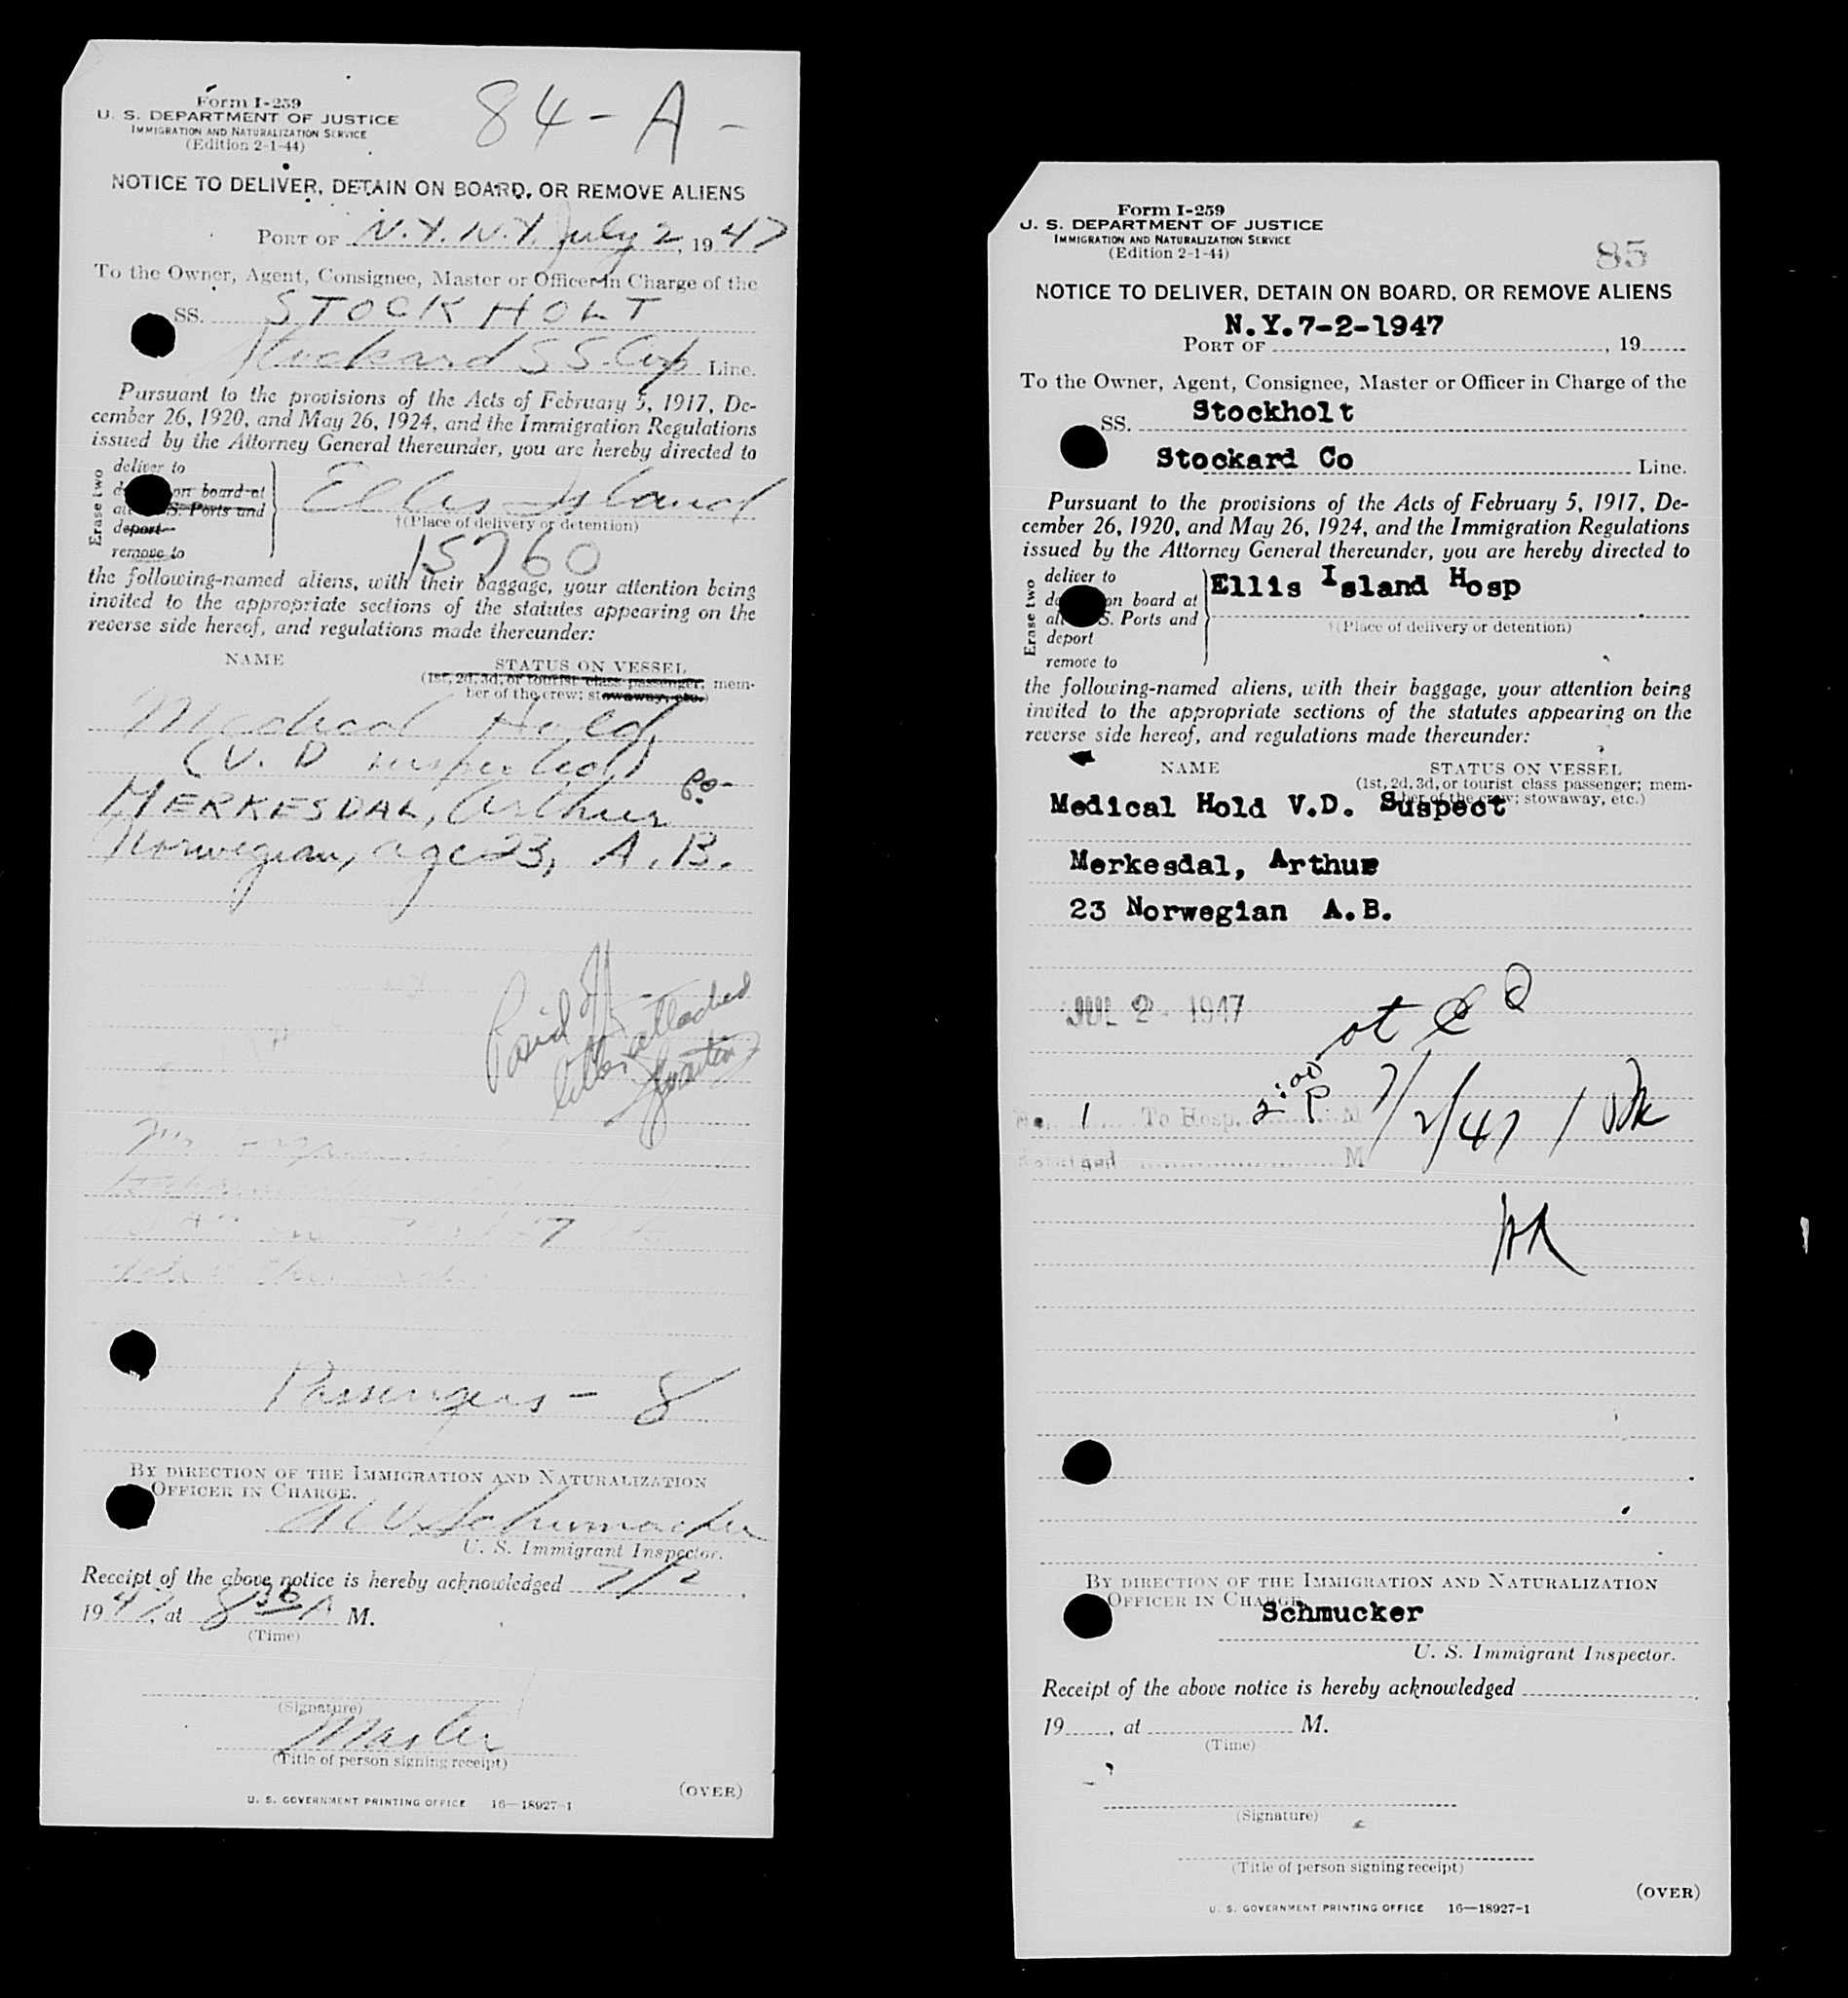 Form I-259
U. S. DEPARTMENT OF JUSTICE
IMMIGRATION AND NATURALIZATION SERVICE
(Edition 2-1-44)
84-A-
NOTICE TO DELIVER, DETAIN ON BOARD, OR REMOVE ALIENS
PORT OF N.Y. N.Y. July 2, 1947
To the Owner, Agent, Consignee, Master or Officer in Charge of the
SS. STOCKHOLT
Stockard SS. Corp Line.
Pursuant to the provisions of the Acts of February 5, 1917, De-
cember 26, 1920, and May 26, 1924, and the Immigration Regulations
issued by the Attorney General thereunder, you are hereby directed to
Erase two
deliver to
on board at
S. Ports and
deport
remove to
Ellis Island
†(Place of delivery or detention)
15760
the following-named aliens, with their baggage, your attention being
invited to the appropriate sections of the statutes appearing on the
reverse side hereof, and regulations made thereunder:
NAME STATUS ON VESSEL
(1st, 2d, 3d, or tourist class passenger; mem-
ber of the crew; stowaway, etc.)
Medical Hold
(V. D
MERKESDAL, Arthur
Norwegian, age 23, A. B.
Paid
attached
Passengers - 8
BY DIRECTION OF THE IMMIGRATION AND NATURALIZATION
OFFICER IN CHARGE.
U. S. Immigrant Inspector.
Receipt of the above notice is hereby acknowledged 7/2,
1947, at 8 30 A M.
(Time)
(Signature)
Master
(Title of person signing receipt)
(OVER)
U. S. GOVERNMENT PRINTING OFFICE 16—18927-1
Form I-259
U. S. DEPARTMENT OF JUSTICE
IMMIGRATION AND NATURALIZATION SERVICE
(Edition 2-1-44)
85
NOTICE TO DELIVER, DETAIN ON BOARD, OR REMOVE ALIENS
N.Y. 7-2-1947
PORT OF , 19
To the Owner, Agent, Consignee, Master or Officer in Charge of the
SS. Stockholt
Stockard Co Line.
Pursuant to the provisions of the Acts of February 5, 1917, De-
cember 26, 1920, and May 26, 1924, and the Immigration Regulations
issued by the Attorney General thereunder, you are hereby directed to
Erase two
deliver to
on board at
S. Ports and
deport
remove to
Ellis Island Hosp
†(Place of delivery or detention)
the following-named aliens, with their baggage, your attention being
invited to the appropriate sections of the statutes appearing on the
reverse side hereof, and regulations made thereunder:
NAME STATUS ON VESSEL
(1st, 2d, 3d, or tourist class passenger; mem-
ber of the crew; stowaway, etc.)
Medical Hold V.D. Suspect
Merkesdal, Arthur
23 Norwegian A.B.
JUL 2 - 1947
at
1 To Hosp. 2:00 P M 7/2/47
M
BY DIRECTION OF THE IMMIGRATION AND NATURALIZATION
OFFICER IN CHARGE
Schmucker
U. S. Immigrant Inspector.
Receipt of the above notice is hereby acknowledged
19 , at M.
(Time)
(Signature)
(Title of person signing receipt)
(OVER)
U. S. GOVERNMENT PRINTING OFFICE 16—18927-1